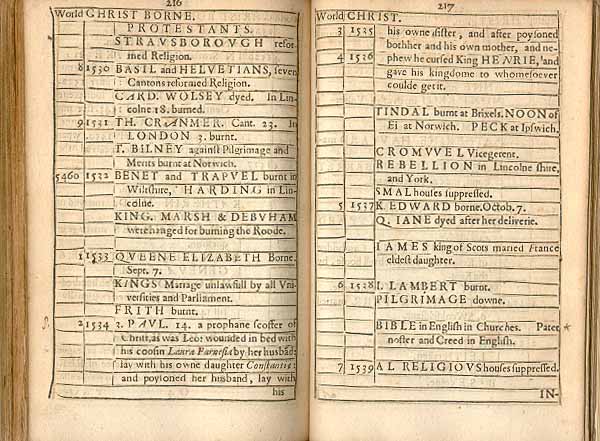 216
World CHRIST BORNE.
PROTESTANTS.
STRAVSBOROVGH refor-
med Religion.
8 1530 BASIL and HELVETIANS, seven
Cantons reformed Religion.
CARD. WOLSEY dyed. In Lin-
colne 18. burned.
9 1531 TH. CRANMER. Cant. 23. In
LONDON 3. burnt.
T. BILNEY against Pilgrimage and
Merits burnt at Norwich.
5460 1532 BENET and TRAPVEL burnt in
Wiltshire, HARDING in Lin-
colne.
KING. MARSH & DEBVHAM
were hanged for burning the Roode.
1 1533 QVEENE ELIZABETH Borne.
Sept. 7.
KINGS Mariage unlawfull by all Vni-
versities and Parliament.
FRITH burnt.
2 1534 3. PAVL. 14. a prophane scoffer of
Christ, as was Leo: wounded in bed with
his coosin Laura Farnesia by her husbād:
lay with his owne daughter Constantia:
and poysoned her husband, lay with
his
217
World CHRIST.
3 1535 his owne sister, and after poysoned
bothher and his own mother, and ne-
4 1526 phew he cursed King HENRIE, and
gave his kingdome to whomesoever
coulde get it.
TINDAL burnt at Brixels. NOON of
Ei at Norwich. PECK at Ipswich.
CROMVVEL Vicegerent.
REBELLION in Lincolne shire,
and York.
SMAL houses suppressed.
5 1537 K. EDWARD borne. Octob. 7.
Q. IANE dyed after her deliverie.
IAMES king of Scots maried France
eldest daughter.
6 1528 I. LAMBERT burnt.
PILGRIMAGE downe.
BIBLE in English in Churches. Pater
noster and Creed in English.
7 1539 AL RELIGIOVS houses suppressed.
IN-